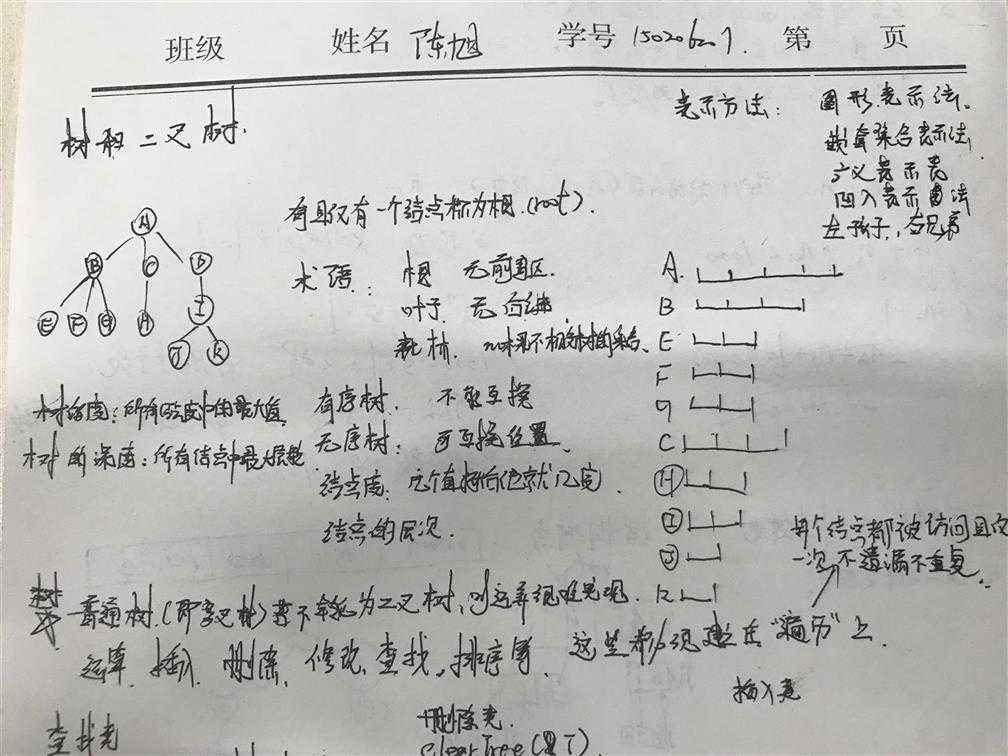 班级 姓名 陈旭 学号 第 页
树和二叉树.
表示方法: 图形表示法、
嵌套集合表示法,
广义表示表
凹入表示法
左孩子,右兄弟
有且仅有一个结点称为根.(root).
术语: 根 无前驱.
叶子. 无后继.
森林. 棵不相交树的集合、
有序树. 不能互换
无序树: 可互换位置.
结点度: 几个直接后继就几度.
结点的层次.
A
B C D
E F G H I
J K
树的度: 所有结点度中的最大值
树的深度: 所有结点中最大层数
A.
B
E
F
G
C
H
I
J
K
每个结点都被访问且仅
一次,不遗漏不重复.
树
普通树.(即多叉树)若不转化为二叉树,则运算很难实现.
运算. 插入 删除、修改、查找,排序等. 这些都必须建立在“遍历”上.
插入克
删除克.
查找克
ClearTree(&T).